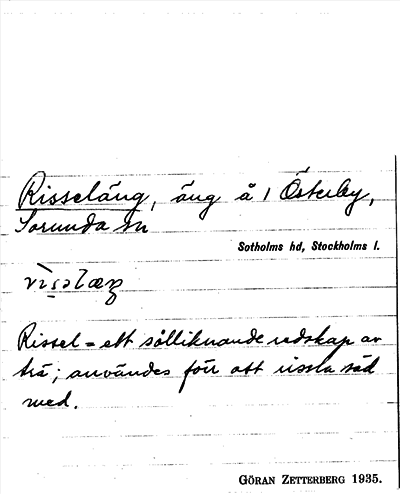 Risseläng, äng å 1 Österby,
Sorunda sn
Sotholms hd, Stockholms l.
Rissel = ett sålliknande redskap av
trä; användes förr att rissla säd
med.
GÖRAN ZETTERBERG 1935.